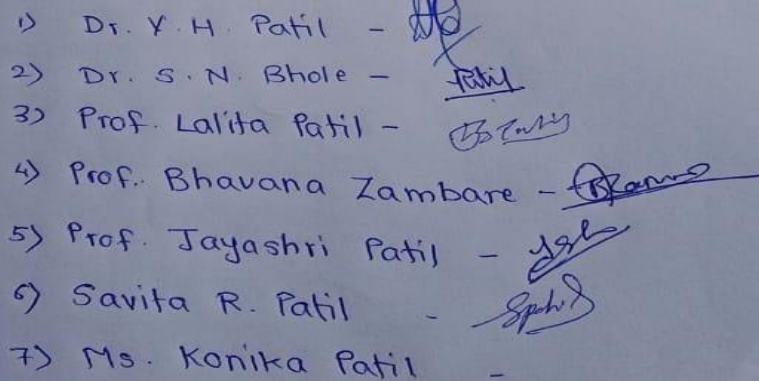 1) Dr. Y. H. Patil -
2) Dr. S. N. Bhole - Patil
3) Prof. Lalita Patil -
4) Prof. Bhavana Zambare -
5) Prof. Jayashri Patil -
6) Savita R. Patil -
7) Ms. Konika Patil -